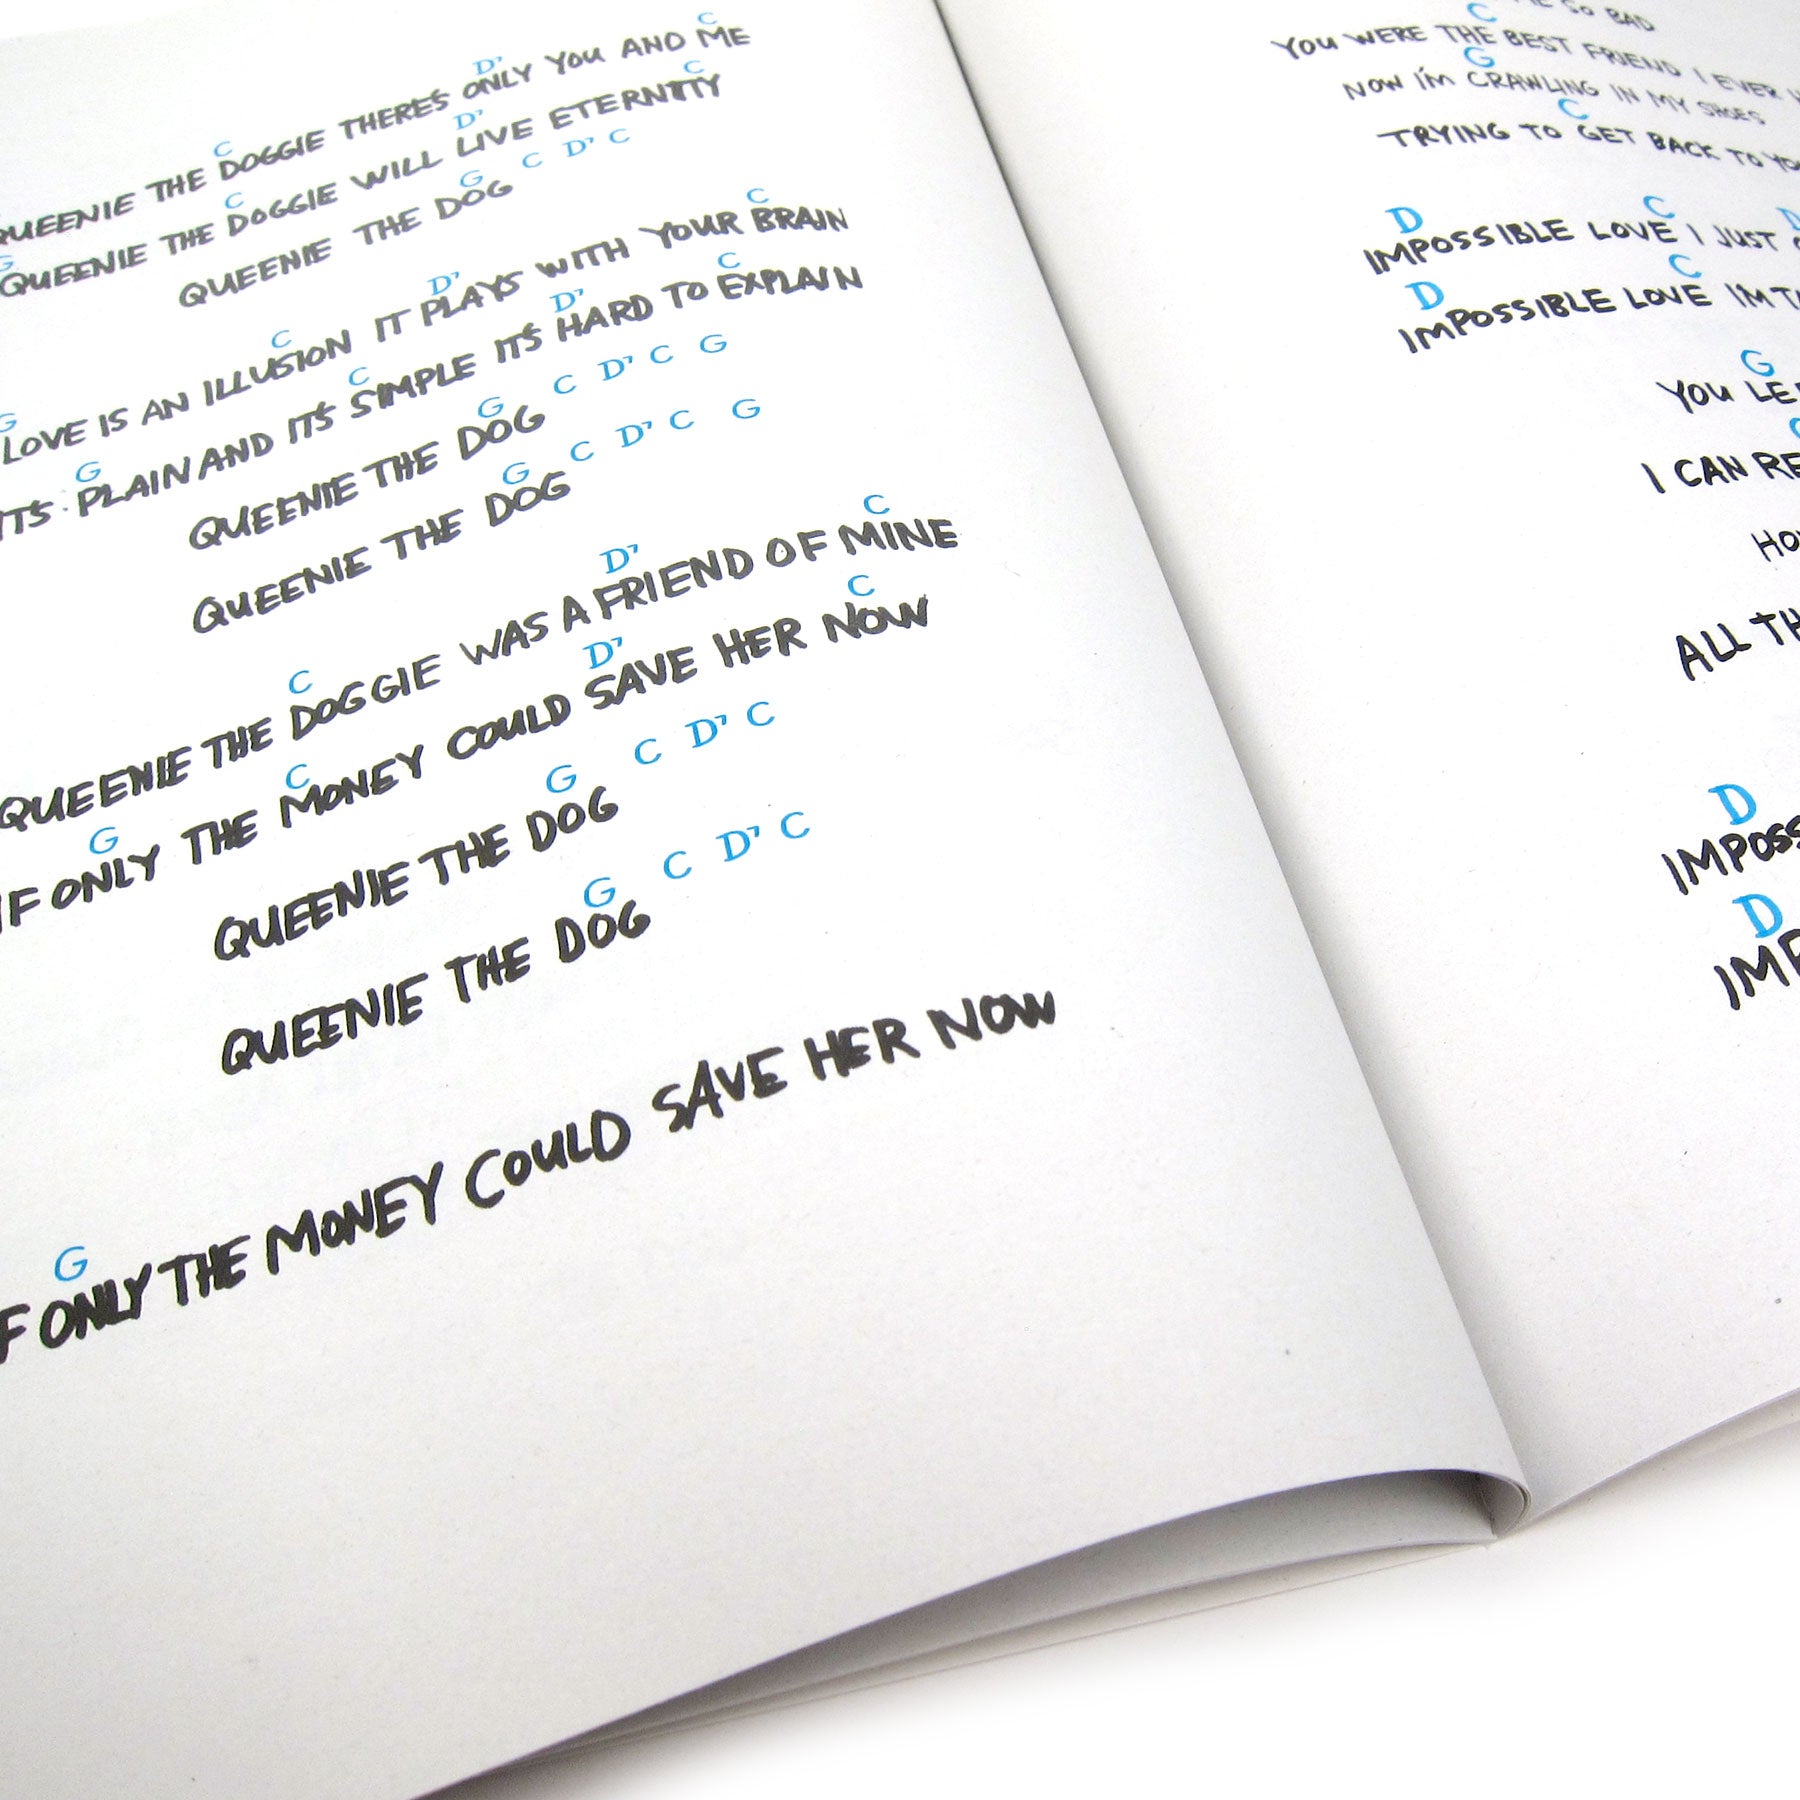 C
D7 C
QUEENIE THE DOGGIE THERE'S ONLY YOU AND ME
C D7 C
G QUEENIE THE DOGGIE WILL LIVE ETERNITY
G C D7 C
QUEENIE THE DOG
C D7 C
G LOVE IS AN ILLUSION IT PLAYS WITH YOUR BRAIN
G C D7 C
IT'S PLAIN AND IT'S SIMPLE IT'S HARD TO EXPLAIN
G C D7 C G
QUEENIE THE DOG
G C D7 C G
QUEENIE THE DOG
C D7 C
QUEENIE THE DOGGIE WAS A FRIEND OF MINE
G C D7 C
IF ONLY THE MONEY COULD SAVE HER NOW
G C D7 C
QUEENIE THE DOG
G C D7 C
QUEENIE THE DOG
G
IF ONLY THE MONEY COULD SAVE HER NOW
SO BAD
C
YOU WERE THE BEST FRIEND I EVER
G
NOW I'M CRAWLING IN MY SHOES
C
TRYING TO GET BACK TO
D C D
IMPOSSIBLE LOVE I JUST
D C
IMPOSSIBLE LOVE IM
G
YOU
I CAN
ALL
D
D